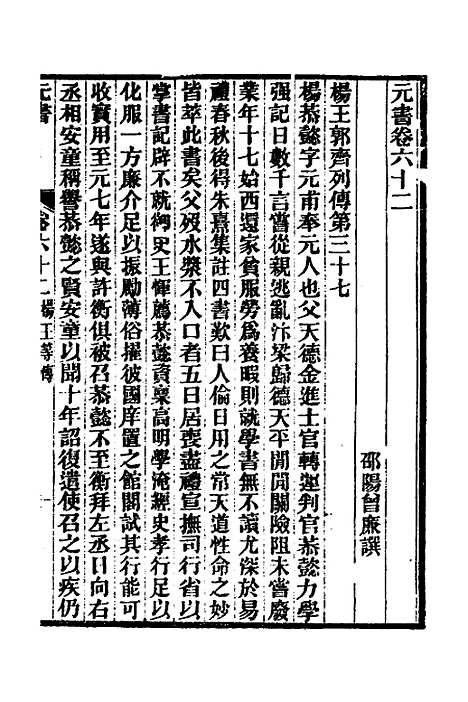 元書卷六十二
邵陽曾廉譔
楊王郭齊列傳第三十七
楊恭懿字元甫奉元人也父天德金進士官轉運判官恭懿力學
强記日數千言嘗從親逃亂汴梁歸德天平閒閒關險阻未嘗廢
業年十七始西還家貧服勞爲養暇則就學書無不讀尤深於易
禮春秋後得朱熹集註四書歎曰人倫日用之常天道性命之妙
皆萃此書矣父歿水漿不入口者五日居喪盡禮宣撫司行省以
掌書記辟不就御史王惲薦恭懿資稟高明學淹經史孝行足以
化服一方廉介足以振勵薄俗擢彼國庠置之館閣試其行能可
收實用至元七年遂與許衡俱被召恭懿不至衡拜左丞日向右
丞相安童稱譽恭懿之賢安童以聞十年詔復遣使召之以疾仍
元書
卷六十二 楊王等傳